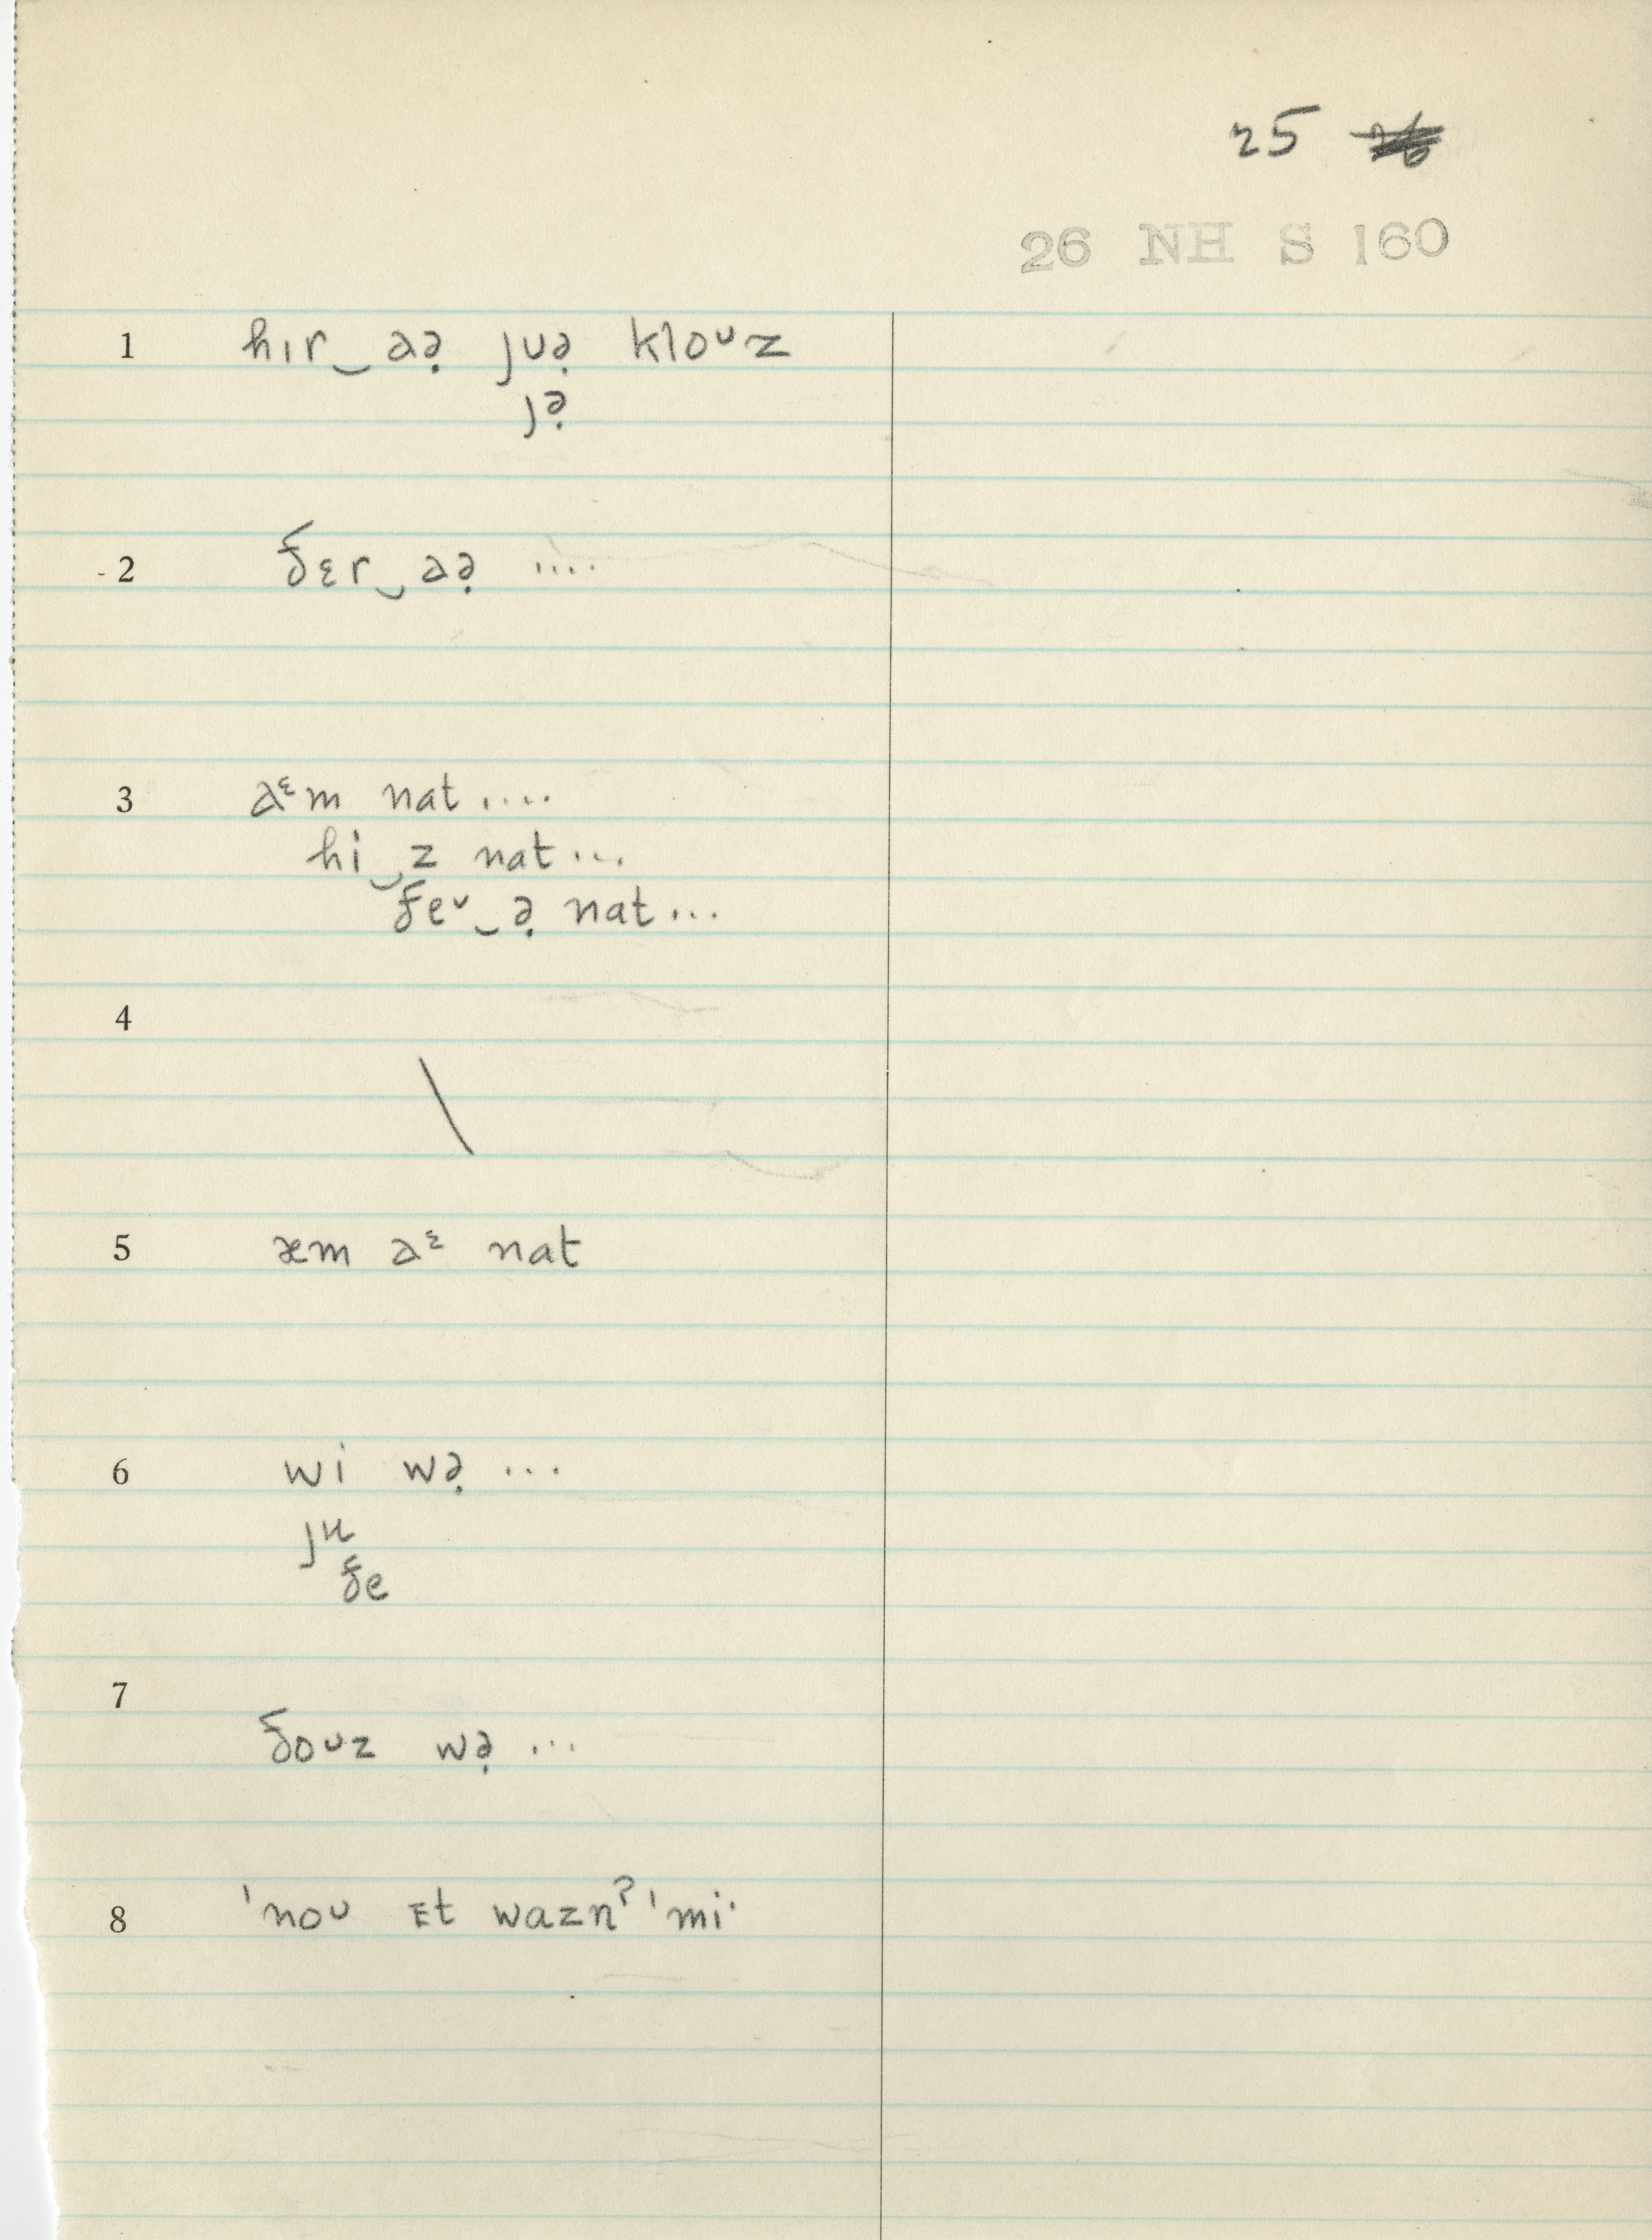 25 26
26 NH S 160
1 hɪr‿aə̣ jʊə̣ kloᴜz
jə̣
2 ðɛr‿aə̣ ....
3 aᵋm nat ....
hi‿z nat ...
ðeᵛ‿ə̣ nat ...
4 \
5 æm aᵋ nat
6 wi wə̣ ...
ju
ðe
7 ðoᴜz wə̣ ...
8 ˈnoᴜ ɪt wazn̩ˀ ˈmi·